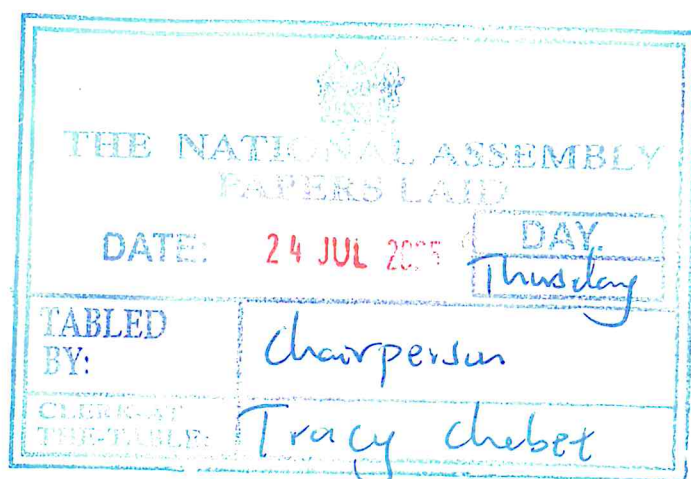 THE NATIONAL ASSEMBLY
PAPERS LAID
DATE: 24 JUL 2025 DAY.
Thursday
TABLED BY: Chairperson
CLERK-AT THE-TABLE: Tracy Chebet